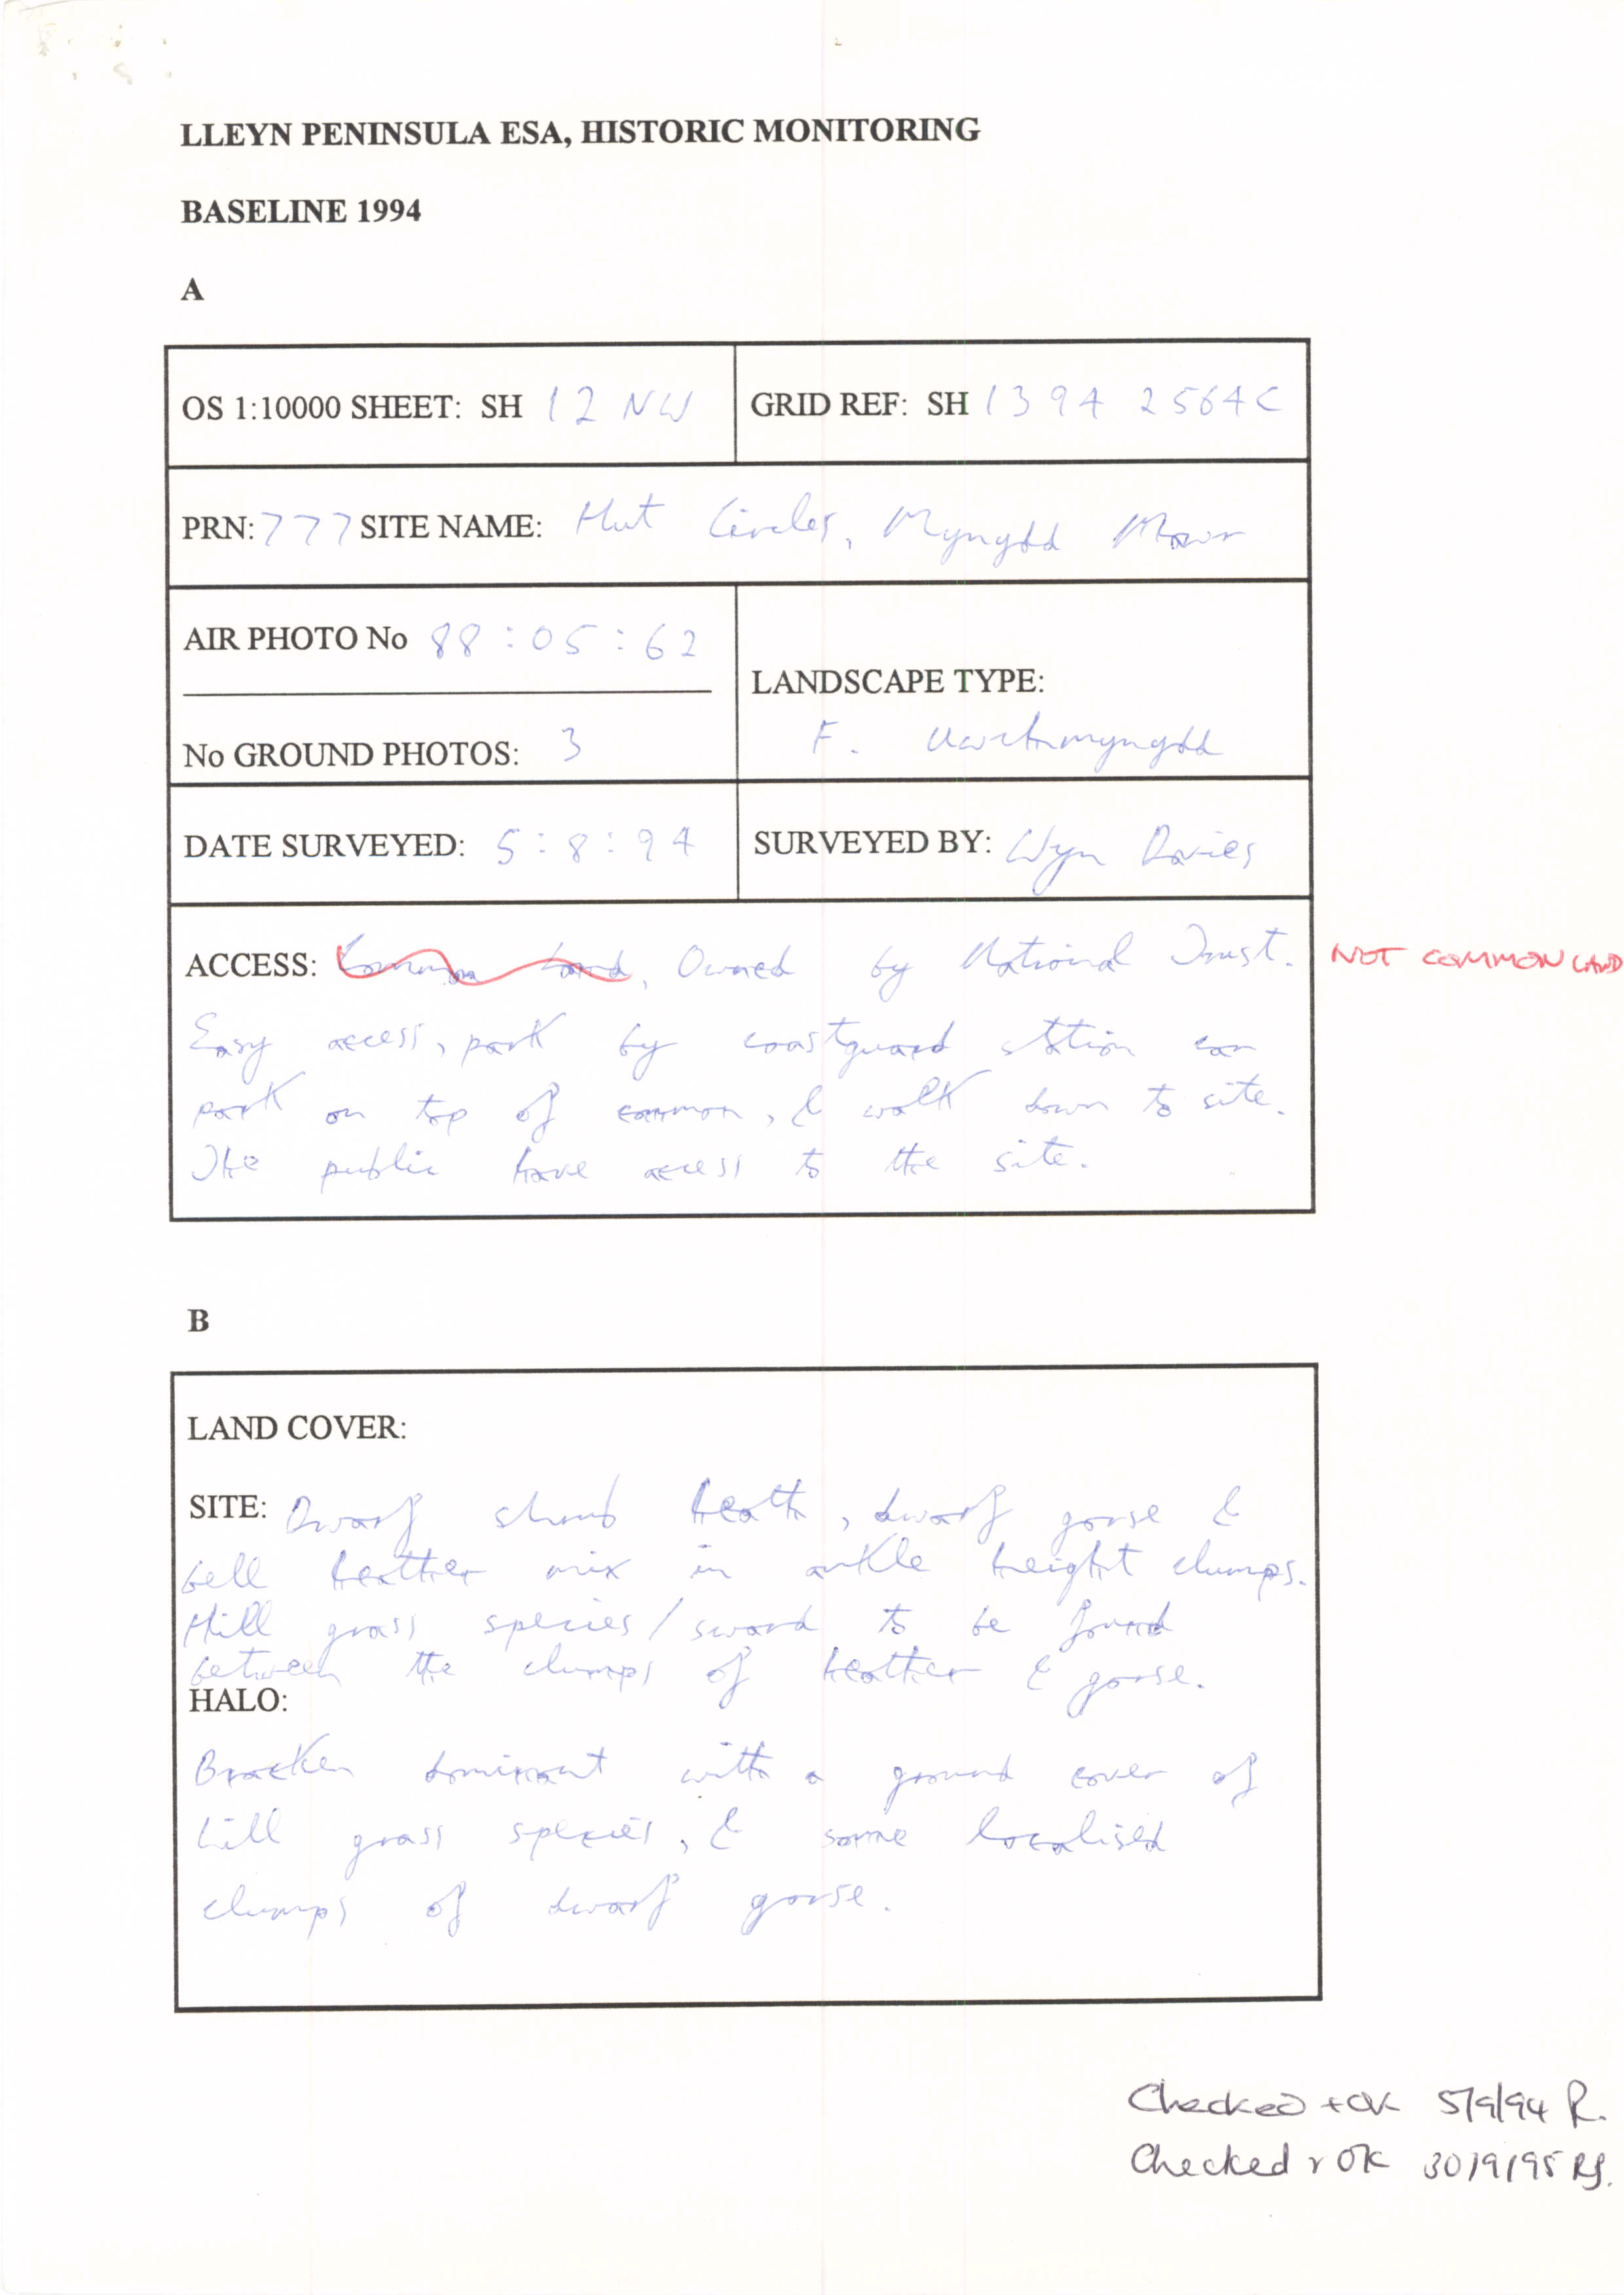 LLEYN PENINSULA ESA, HISTORIC MONITORING
BASELINE 1994
A
OS 1:10000 SHEET: SH 12 NW
GRID REF: SH 1394 2564C
PRN: 777 SITE NAME: Hut Circles, Mynydd Mawr
AIR PHOTO No 88:05:62
No GROUND PHOTOS: 3
LANDSCAPE TYPE:
F.
DATE SURVEYED: 5:8:94
SURVEYED BY: Wyn Davies
ACCESS: Common Land, Owned by National Trust. NOT COMMON LAND
Easy access, park by coastguard station can
park on top of common, & walk down to site.
The public have access to the site.
B
LAND COVER:
SITE: Dwarf shrub heath, dwarf gorse &
bell heather mix in ankle height clumps.
Hill grass species/sward to be found
between the clumps of heather & gorse.
HALO:
Bracken dominant with a ground cover of
hill grass species, & some localised
clumps of dwarf gorse.
Checked + OK 5/9/94 R.
Checked + OK 30/9/95 RS.